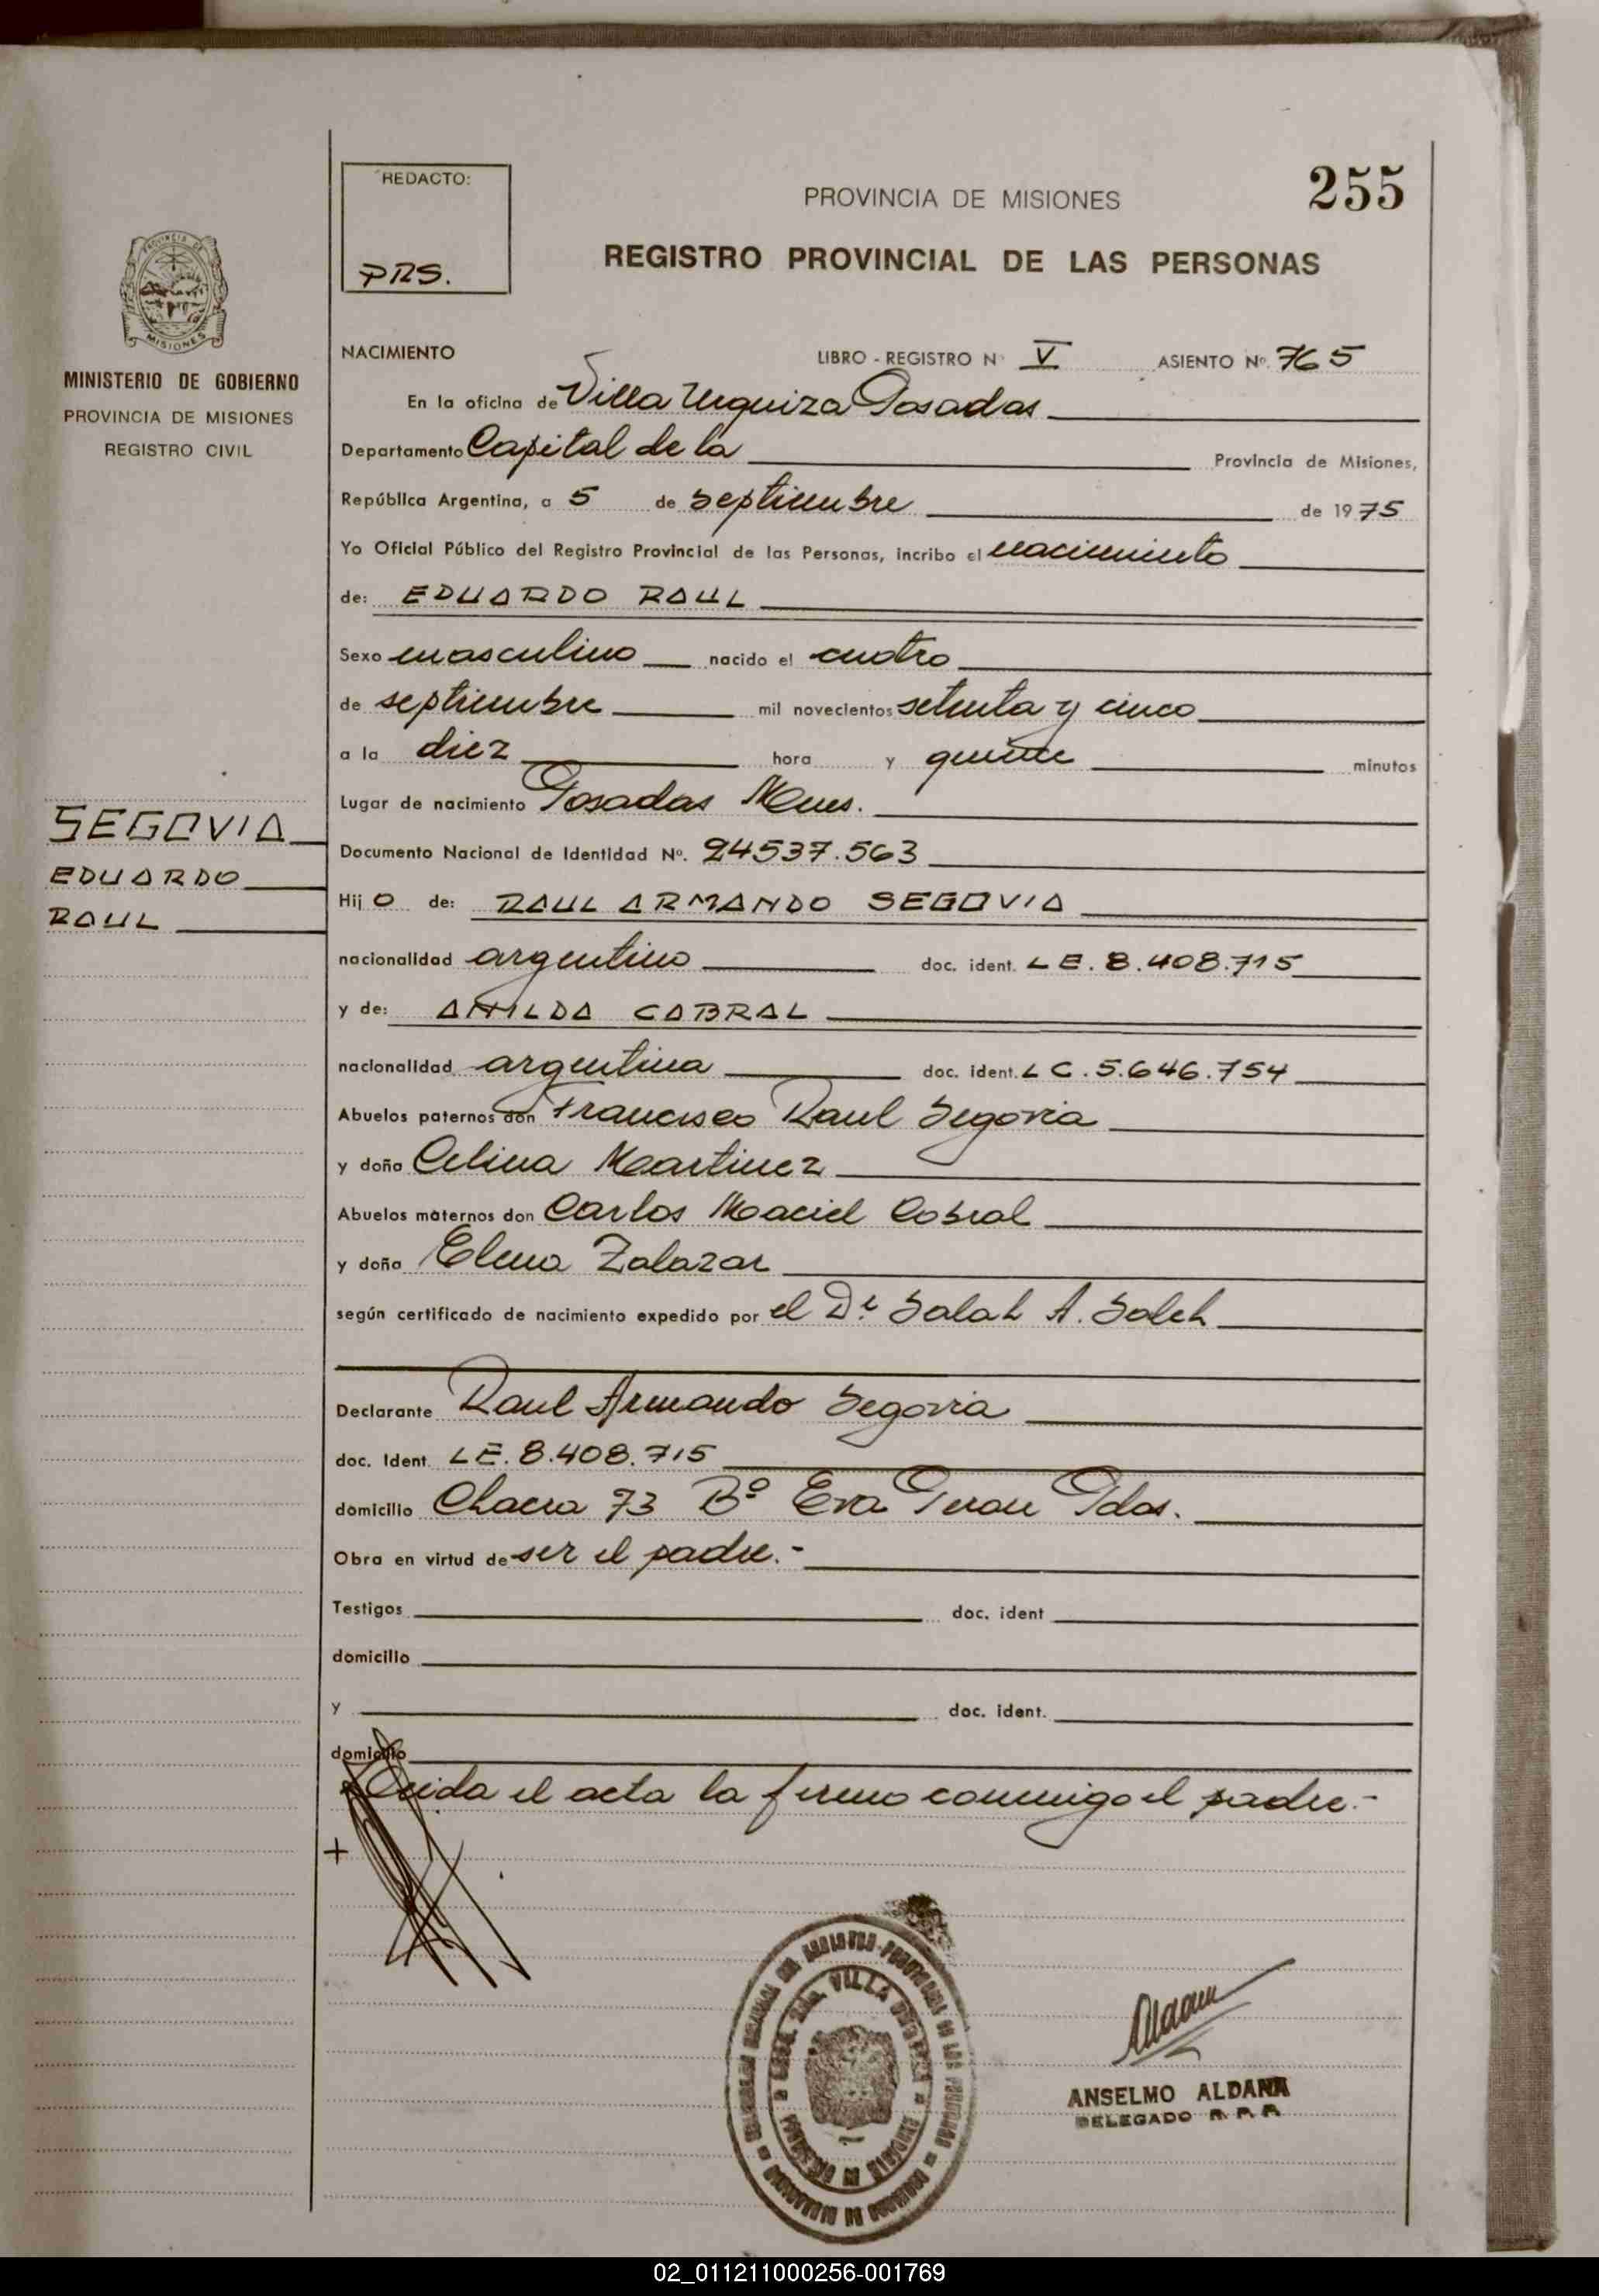 255
REDACTO:
PRS.
PROVINCIA DE MISIONES
REGISTRO PROVINCIAL DE LAS PERSONAS
MISIONES
MINISTERIO DE GOBIERNO
PROVINCIA DE MISIONES
REGISTRO CIVIL
NACIMIENTO LIBRO - REGISTRO N° V ASIENTO Nº. 765
En la oficina de Villa Urquiza Posadas
Departamento Capital de la Provincia de Misiones,
República Argentina, a 5 de septiembre de 1975
Yo Oficial Público del Registro Provincial de las Personas, incribo el nacimiento
de: EDUARDO RAUL
Sexo masculino nacido el cuatro
de septiembre mil novecientos setenta y cinco
a la diez hora y quince minutos
Lugar de nacimiento Posadas Mnes.
SEGOVIA
EDUARDO
RAUL
Documento Nacional de Identidad Nº. 24537.563
Hij o de: RAUL ARMANDO SEGOVIA
nacionalidad argentino doc. ident. LE. 8.408.715
y de: CABRAL
nacionalidad argentina doc. ident. LC. 5.646.754
Abuelos paternos don Francisco Raul Segovia
y doña Celina Martinez
Abuelos maternos don Carlos Maciel Cabral
y doña Elena Zalazar
según certificado de nacimiento expedido por el Dr. Salah A. Saleh
Declarante Raul Armando Segovia
doc. Ident. LE. 8.408.715
domicilio Chacra 73 Bº Eva Peron Pdas.
Obra en virtud de ser el padre.-
Testigos doc. ident
domicilio
y doc. ident.
domicilio
Leida el acta la firmo conmigo el padre.-
+
VILLA URQUIZA
Aldana
ANSELMO ALDANA
DELEGADO R. P. P.
02_011211000256-001769